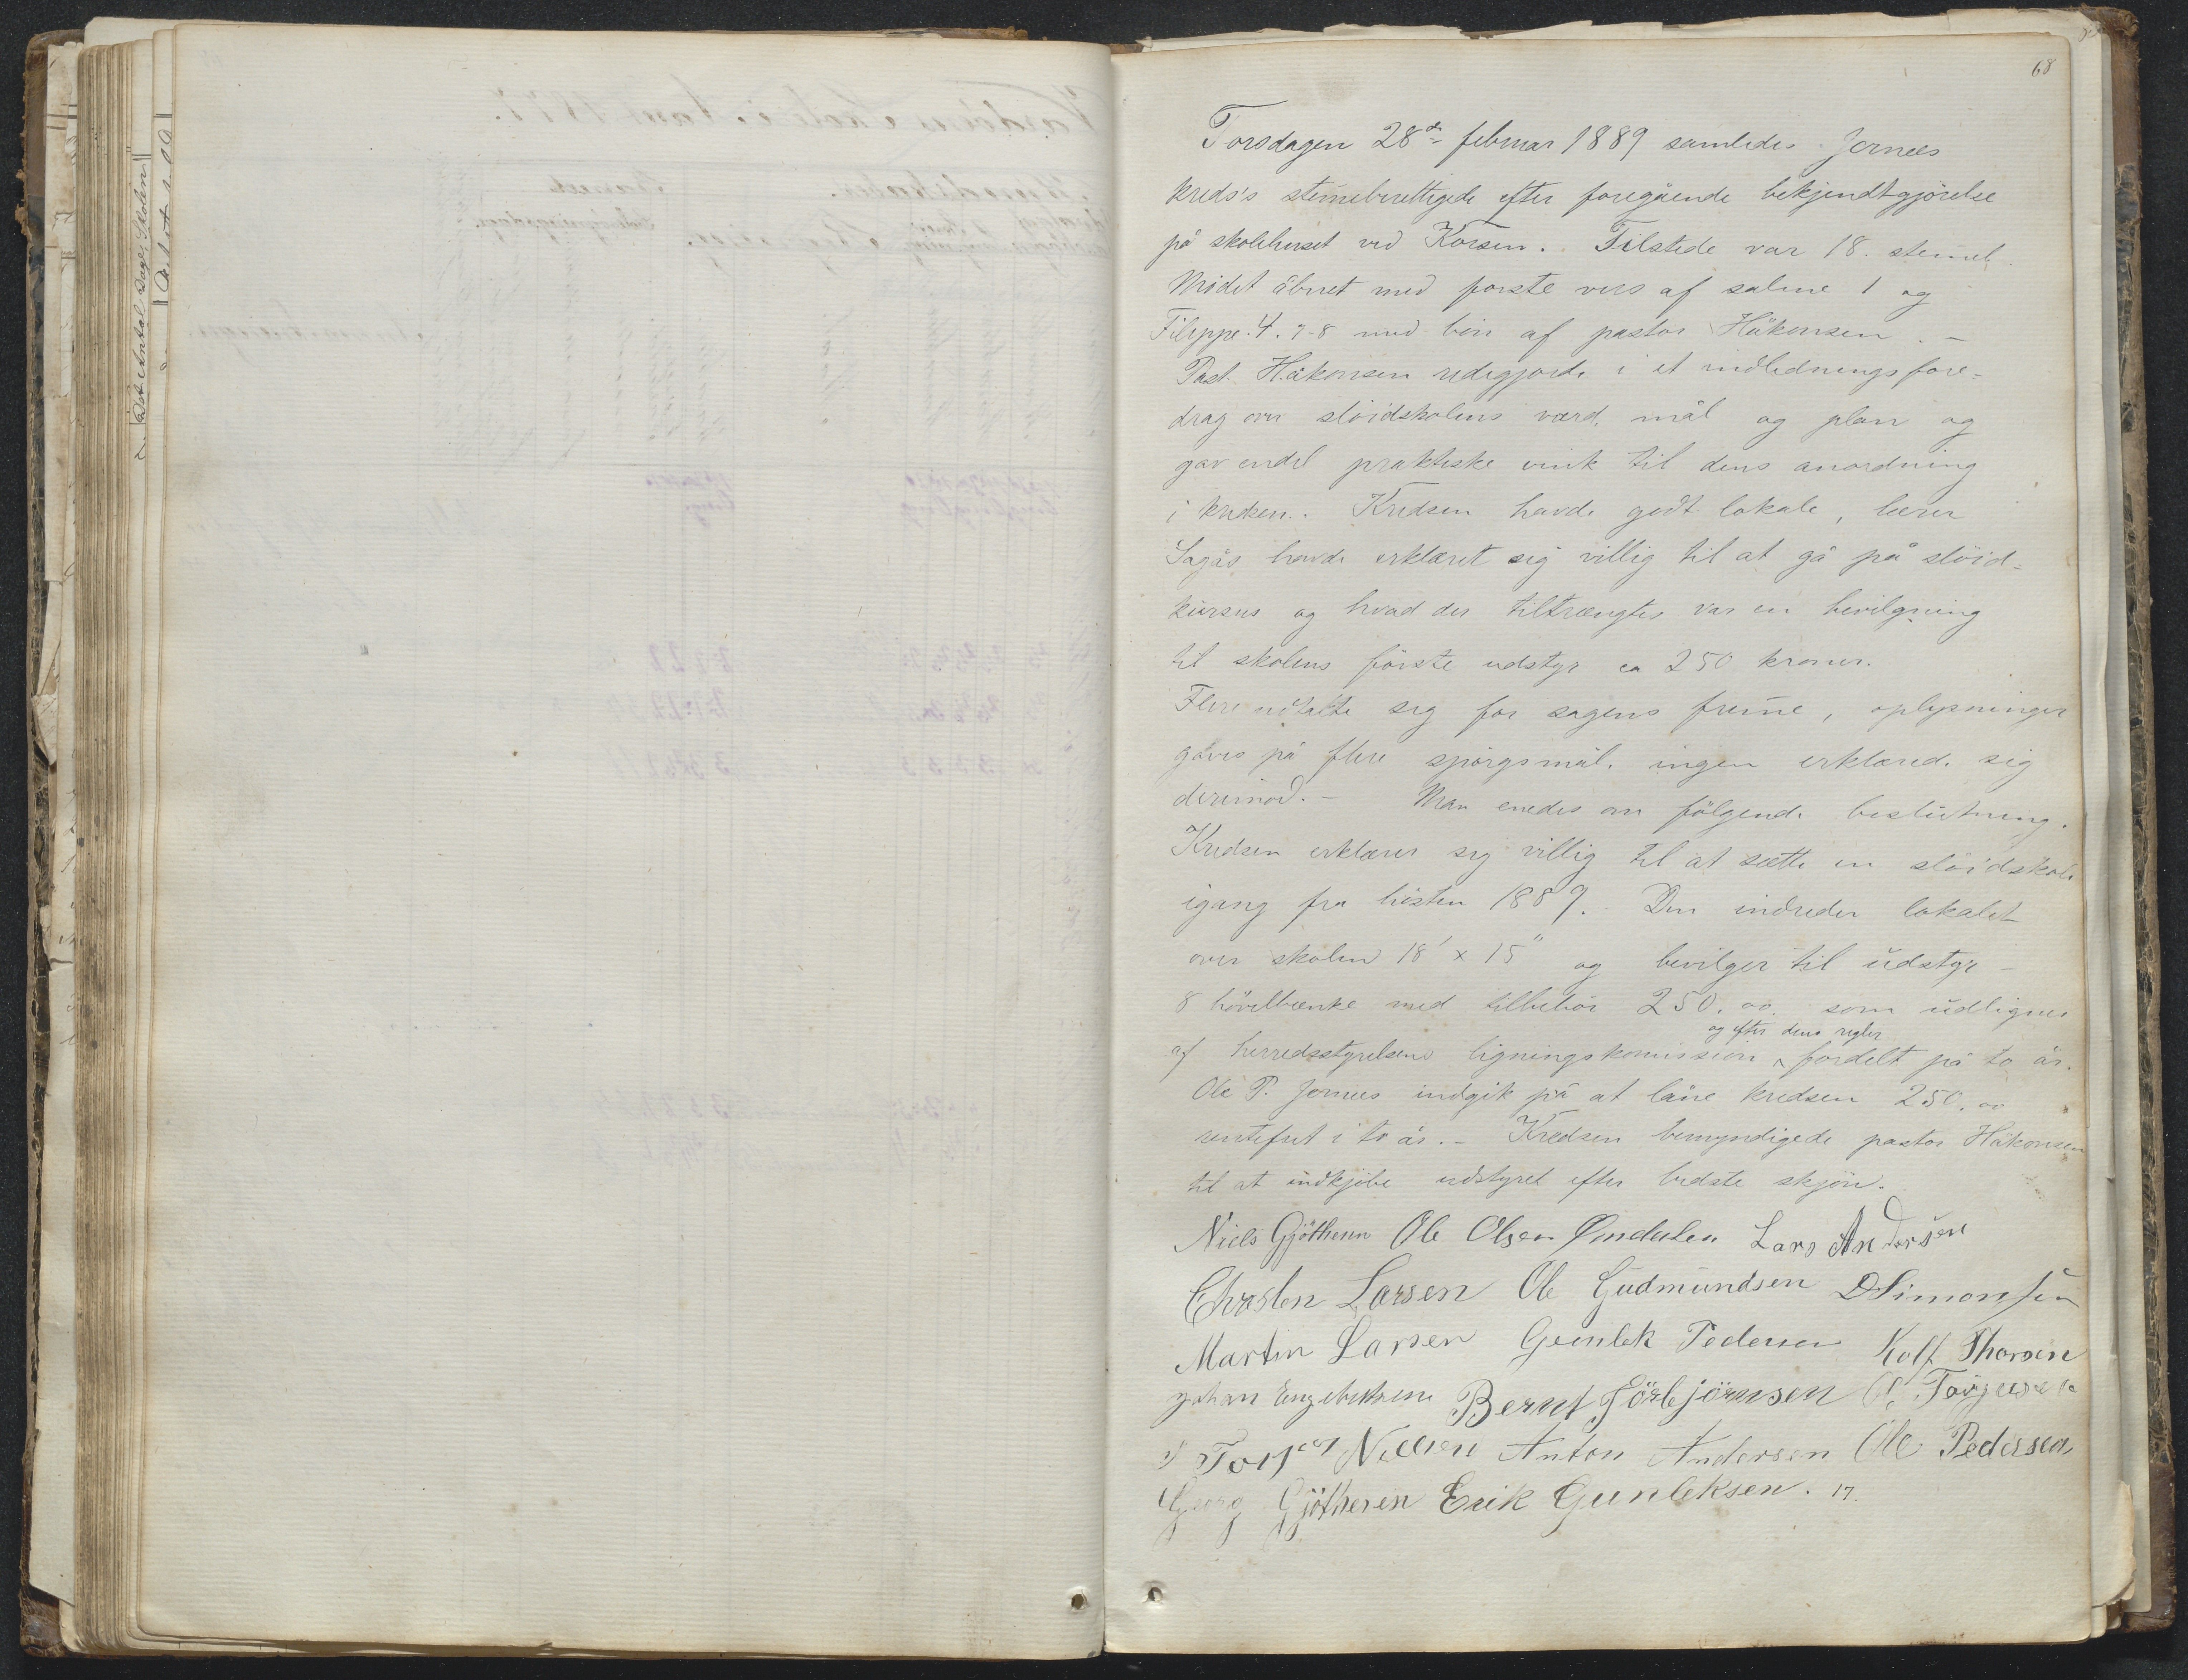 68
Torsdagen 28de februar 1889 samledes Jernæs
kreds's stemeberettigede efter foregående bekjendtgjörelse
på skolehuset ved Korsen. Tilstede var 18. stemeb.
Mödet åbnet med förste vers af salme 1 og
Filippe. 4. 7-8 med bön af pastor Håkonsen. –
Past. Håkonsen redegjorde i et indlednings fore-
drag over slöidskolens værd, mål og plan og
gav endel praktiske vink til dens anordning
i kredsen. Kredsen havde godt lokale, lærer
Sagås havde erklæret sig villig til at gå på slöid-
kursus og hvad der tiltrængtes var en bevilgning
til skolens förste udstyr ca 250 kroner.
Flere udtalte sig for sagens freme, oplysninger
gaves på flere spörgsmål. ingen erklæred. sig
derimod. – Man enedes om fölgende beslutning.
Kredsen erklærer sig villig til at sætte en slöidskole
igang fra hösten 1889. Den indreder lokalet
over skolen 18' x 15" og bevilger til udstyr –
8 hövelbænke med tilbehör 250.00 som udlignes
og efter dens regler
af herredsstyrelsens ligningskomission ^ fordelt på to år.
Ole P. Jernæs indgik på at låne kredsen 250.00
rentefrit i to år. – Kredsen bemyndigede pastor Håkonsen
til at indkjöbe udstyret efter bedste skjön.
Niels Gjötheren Ole Olsen Lars Andersen
Larsen Ole Gudmundsen D Simonsen
Martin Larsen Gunlek Pedersen Rolf Thorsen
Johan Engebretsen Bernt Törbjörnsen O. Torjusen
Nielsen Anton Andersen Ole Pedersen
Georg Gjötheren Erik Gunleksen. 17.
Det Antal Dage Skolen